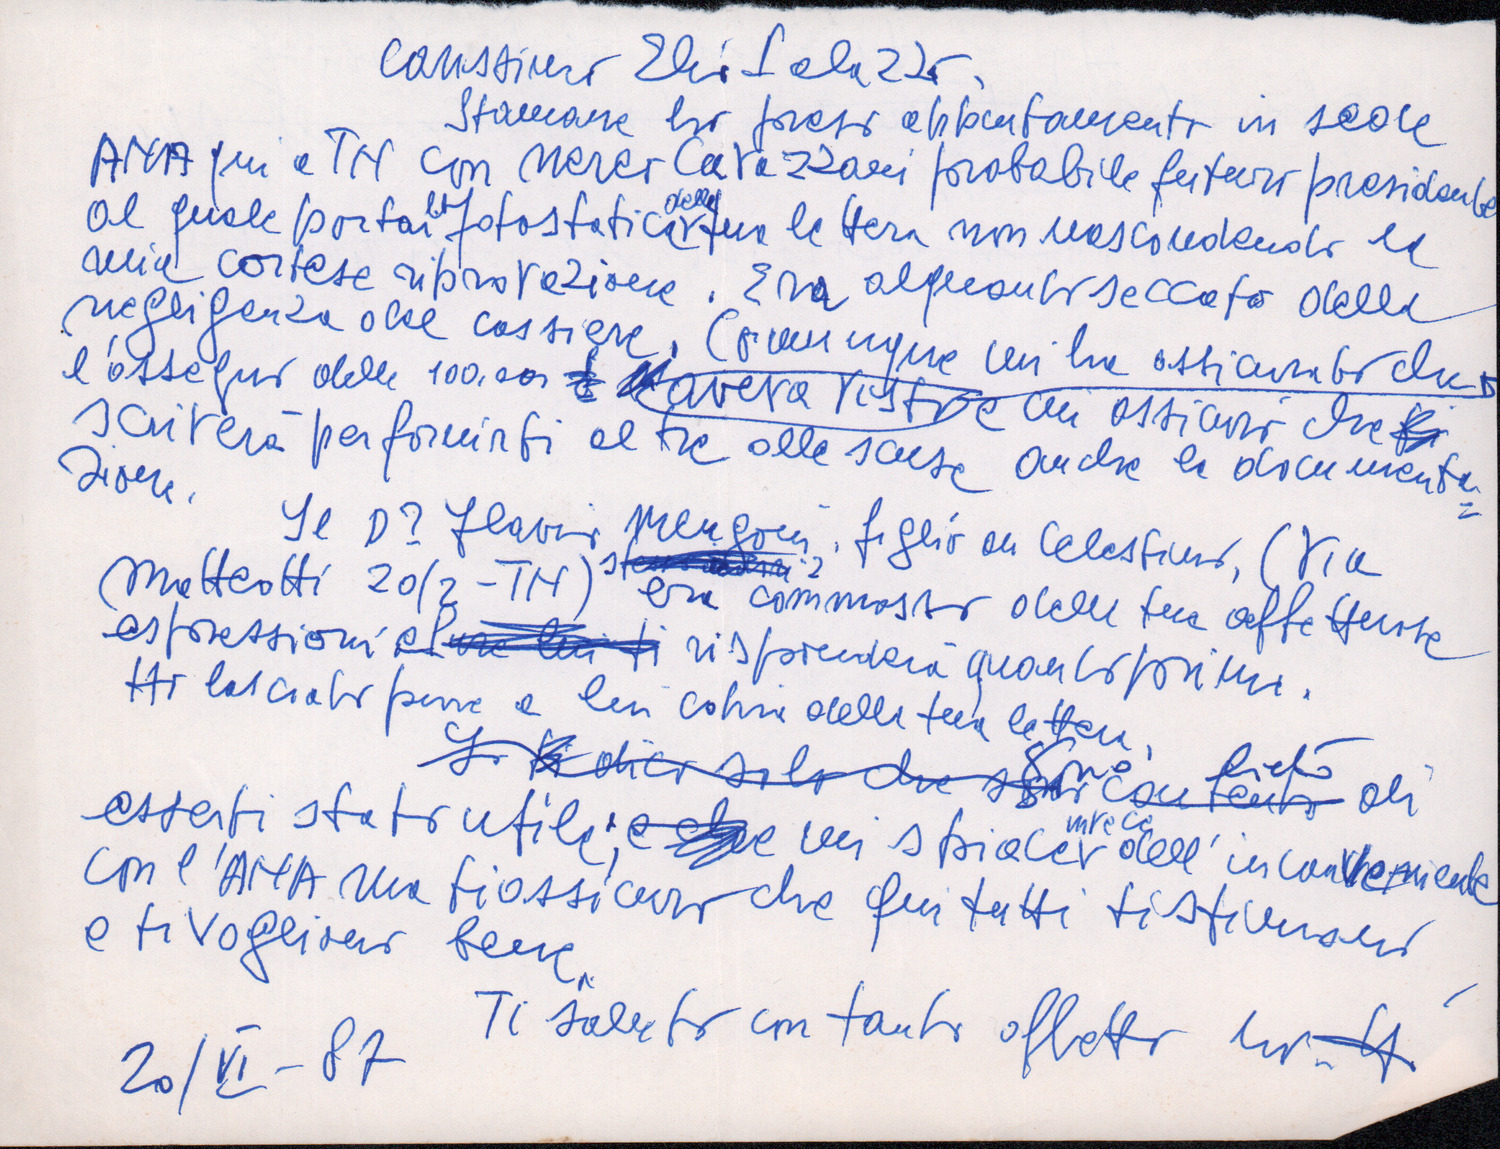 Carissimo
Stamane ho preso appuntamento in sede
ANA qui a TN con Nereo Cavazzani probabile futuro presidente
al quale portai la fotostatica della tua lettera non nascondendo la
mia cortese riprovazione. Era alquanto seccato della
negligenza del cassiere. Comunque mi ha assicurato che
l'assegno delle 100.000 £ aveva visto e mi assicurò che
scriverà per fornirti oltre alle scuse anche la documenta
zione.
Il D? Flavio Mengoni, figlio di Celestino, (Via
Matteotti 20/2 - TN) era commosso delle tue affettuose
espressioni e risponderà quanto prima.
Ho lasciato pure a lui copia della tua lettera.
Io ti dico solo che sono contento lieto di
esserti stato utile; e che mi spiace invece dell'inconveniente
con l'ANA ma ti assicuro che qui tutti ti stimano
e ti vogliono bene.
Ti saluto con tanto affetto
20/VI - 87